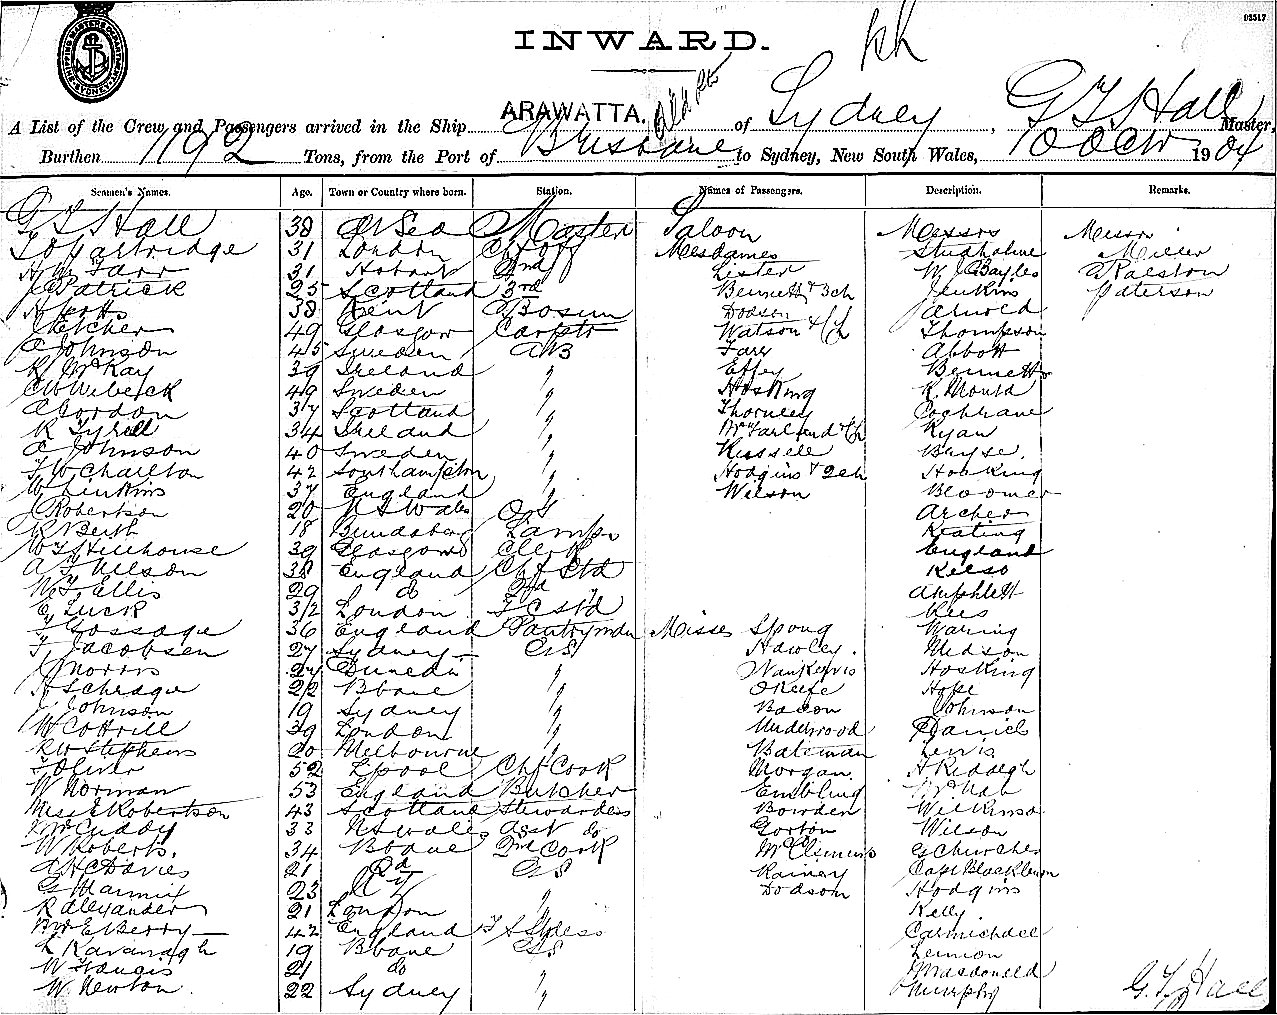 03517
INWARD.
ARAWATTA.
A List of the Crew and Passengers arrived in the Ship of Sydney, G T S Hall Master,
Burthen 1192 Tons, from the Port of Brisbane to Sydney, New South Wales, 10 Oct 1904
Seamen's Names. Age. Town or Country where born. Station. Names of Passengers. Description. Remarks.
G T S Hall 38 At Sea Master Saloon Messrs Messrs
31 London Ch Off Mesdames Studholme Miller
Farr 31 Hobart 2nd Lister W J Bayles Ralston
J Patrick 25 Scotland 3rd Bennett & 3ch Jenkins Paterson
38 Kent Bosun Dodson Arnold
Fletcher 49 Glasgow Carptr Watson & Ch Thompson
Johnson 45 Sweden AB Farr Abbott
R McKay 39 Ireland " Effey Bennett
49 Sweden " Hosking R. Mould
Gordon 37 Scotland " Thornley Cochrane
R Tyrell 34 Ireland " McFarland & Ch Ryan
Johnson 40 Sweden " Russell Bayse.
F W Charlton 42 Southampton " Hodgins & 2ch Hosking
W Jenkins 37 England " Wilson Bloomer
J Robertson 20 N S Wales OS Archer
R Beith 18 Bundaberg Lamps Keating
W T Hillhouse 39 Glasgow Clerk England
A T Nelson 38 England Chf Std Kelso
W F Ellis 29 do 2nd " Amphlett
E Luck 32 London F C Std Rees
F Gossage 36 England Pantryman Misses Spong Waring
F Jacobsen 27 Sydney GS Hawley. Midson
J Norris 24 Dunedin " Nankervis Hosking
H Schrage 22 Bbane " OKeefe Hope
J Johnson 19 Sydney " Bacon Johnson
W Cottrill 39 London " Underwood Daniel
R W Stephens 20 Melbourne " Bateman Lewis
Oliver 52 Lpool Chf Cook Morgan. H Riddagh
W Norman 53 England Butcher Embling McNab
Miss E Robertson 43 Scotland Stewardess Bowden Wilkinson
McCuddy 33 N S Wales Asst do Gorton Wilson
W Roberts. 34 Bbane 2nd Cook McClemens G Churcher
A H C Davies 21 GS Rainey Capt Blackburn
G 23 " Dodson Hodgins
R Alexander 21 London " Kelly.
Mrs E Berry 42 England F S Stdess Carmichael
L Kavanagh 19 Bbane GS Lennon
W Francis 21 do Macdonald
W. Newton 22 Sydney " Murphy
G. T. S. Hall